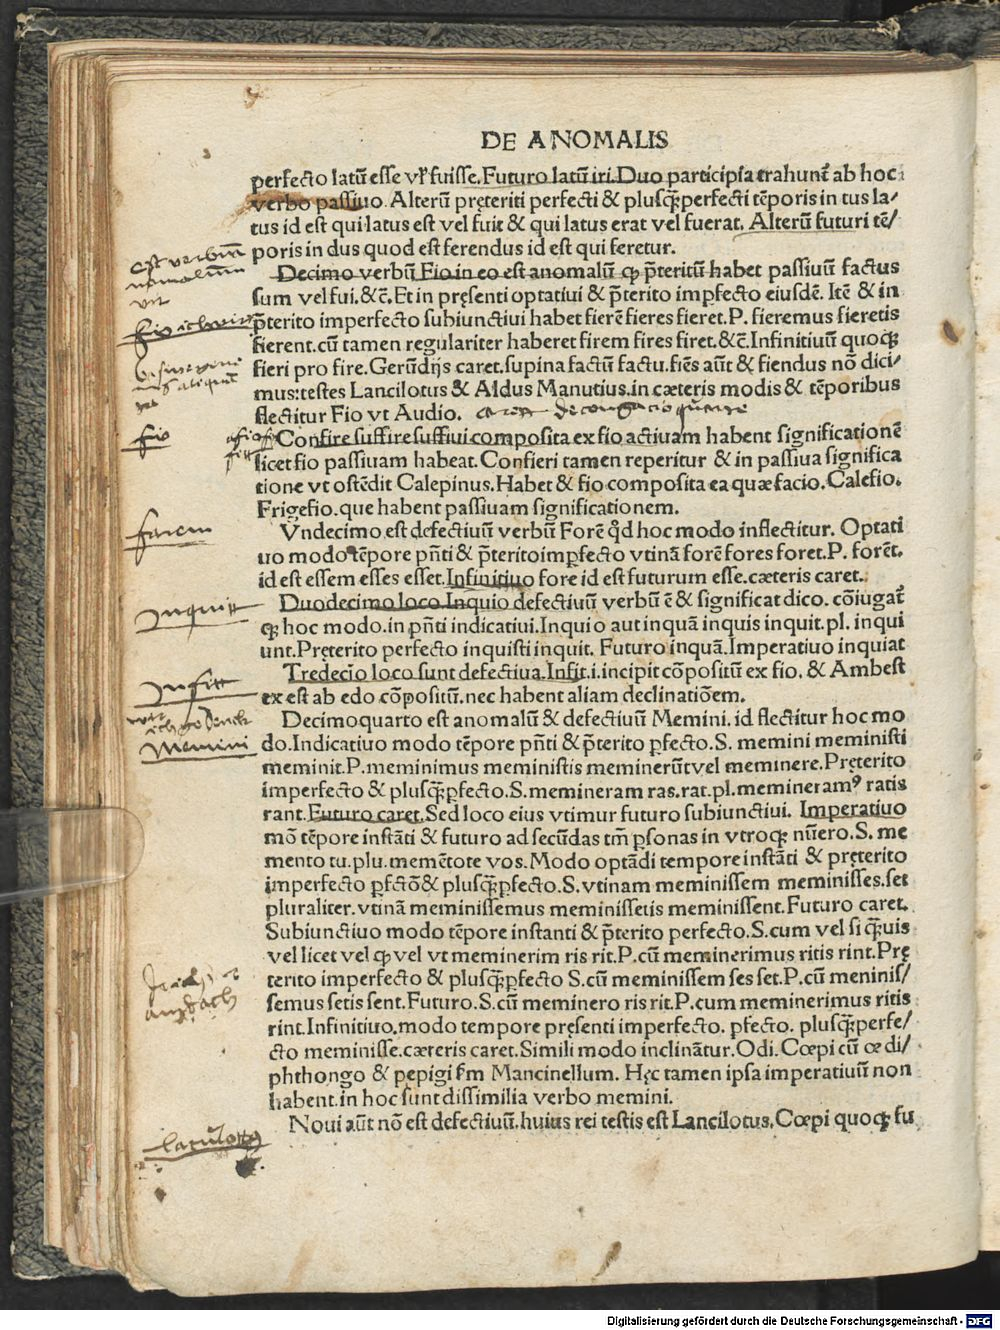 DE ANOMALIS
perfecto latū esse vł fuisse. Futuro latū iri. Duo participia trahunt̃ ab hoc
verbo passiuo. Alterū pręteriti perfecti & plusq̃ꝫ perfecti tēporis in tus la-
tus id est qui latus est vel fuit & qui latus erat vel fuerat. Alterū futuri tē/
poris in dus quod est ferendus id est qui feretur.
Decimo verbū Fio in eo est anomalū ꝙ p̄teritū habet passiuū factus
sum vel fui. &c̄. Et in pręsenti optatiui & p̄terito imꝑfecto eiusdē. Itē & in
p̄terito imperfecto subiunctiui habet fierē fieres fieret. P. fieremus fieretis
fierent. cū tamen regulariter haberet firem fires firet. &c̄. Infinitiuū quoqꝫ
fieri pro fire. Gerūdijs caret. supina factū factu. fiēs aūt & fiendus nō dici-
mus: testes Lancilotus & Aldus Manutius. in cæteris modis & tēporibus
flectitur Fio vt Audio.
Confire suffire suffiui composita ex fio actiuam habent significationē
licet fio passiuam habeat. Confieri tamen reperitur & in passiua significa
tione vt ostēdit Calepinus. Habet & fio composita ea quæ facio. Calefio.
Frigefio. que habent passiuam significationem.
Vndecimo est defectiuū verbū Forē qd̄ hoc modo inflectitur. Optati
uo modo tēpore pn̄ti & p̄terito imꝑfecto vtinā forē fores foret. P. forēt.
id est essem esses esset. Infinitiuo fore id est futurum esse. cæteris caret.
Duodecimo loco Inquio defectiuū verbū ē & significat dico. cōiugat̃
ꝙ hoc modo. in pn̄ti indicatiui. Inquio aut inquā inquis inquit. pl. inqui
unt. Pręterito perfecto inquisti inquit. Futuro inquā. Imperatiuo inquiat
Tredecīo loco sunt defectiua. Infit. i. incipit cōpositū ex fio. & Ambest
ex est ab edo cōpositū. nec habent aliam declinatiōem.
Decimoquarto est anomalū & defectiuū Memini. id flectitur hoc mo
do. Indicatiuo modo tēpore pn̄ti & p̄terito ꝑfecto. S. memini meministi
meminit. P. meminimus meministis meminerūt vel meminere. Pręterito
imperfecto & plusq̃ꝫ ꝑfecto. S. memineram ras. rat. pl. memineramꝰ ratis
rant. Futuro caret. Sed loco eius vtimur futuro subiunctiui. Imperatiuo
mō tēpore instāti & futuro ad secūdas tm̄ ꝑsonas in vtroqꝫ nūero. S. me
mento tu. plu. memētote vos. Modo optādi tempore instāti & pręterito
imperfecto ꝑfctō & plusq̃ꝫ ꝑfecto. S. vtinam meminissem meminisses. set
pluraliter. vtinā meminissemus meminissetis meminissent. Futuro caret.
Subiunctiuo modo tēpore instanti & p̄terito perfecto. S. cum vel si q̃ꝫuis
vel licet vel ꝙ vel vt meminerim ris rit. P. cū meminerimus ritis rint. Prę
terito imperfecto & plusq̃ꝫ ꝑfecto S. cū meminissem ses set. P. cū meninis/
semus setis sent. Futuro. S. cū meminero ris rit. P. cum meminerimus ritis
rint. Infinitiuo. modo tempore pręsenti imperfecto. ꝑfecto. plusq̃ꝫ perfe/
cto meminisse. cæteris caret. Simili modo inclināt̃ur. Odi. Cœpi cū œ di/
phthongo & pepigi fm̄ Mancinellum. Hęc tamen ipsa imperatiuū non
habent. in hoc sunt dissimilia verbo memini.
Noui aūt nō est defectiuū. huius rei testis est Lancilotus. Cœpi quoqꝫ fu
fio
farem
inquitt
infitt
Memini
Digitalisierung gefördert durch die Deutsche Forschungsgemeinschaft - DFG